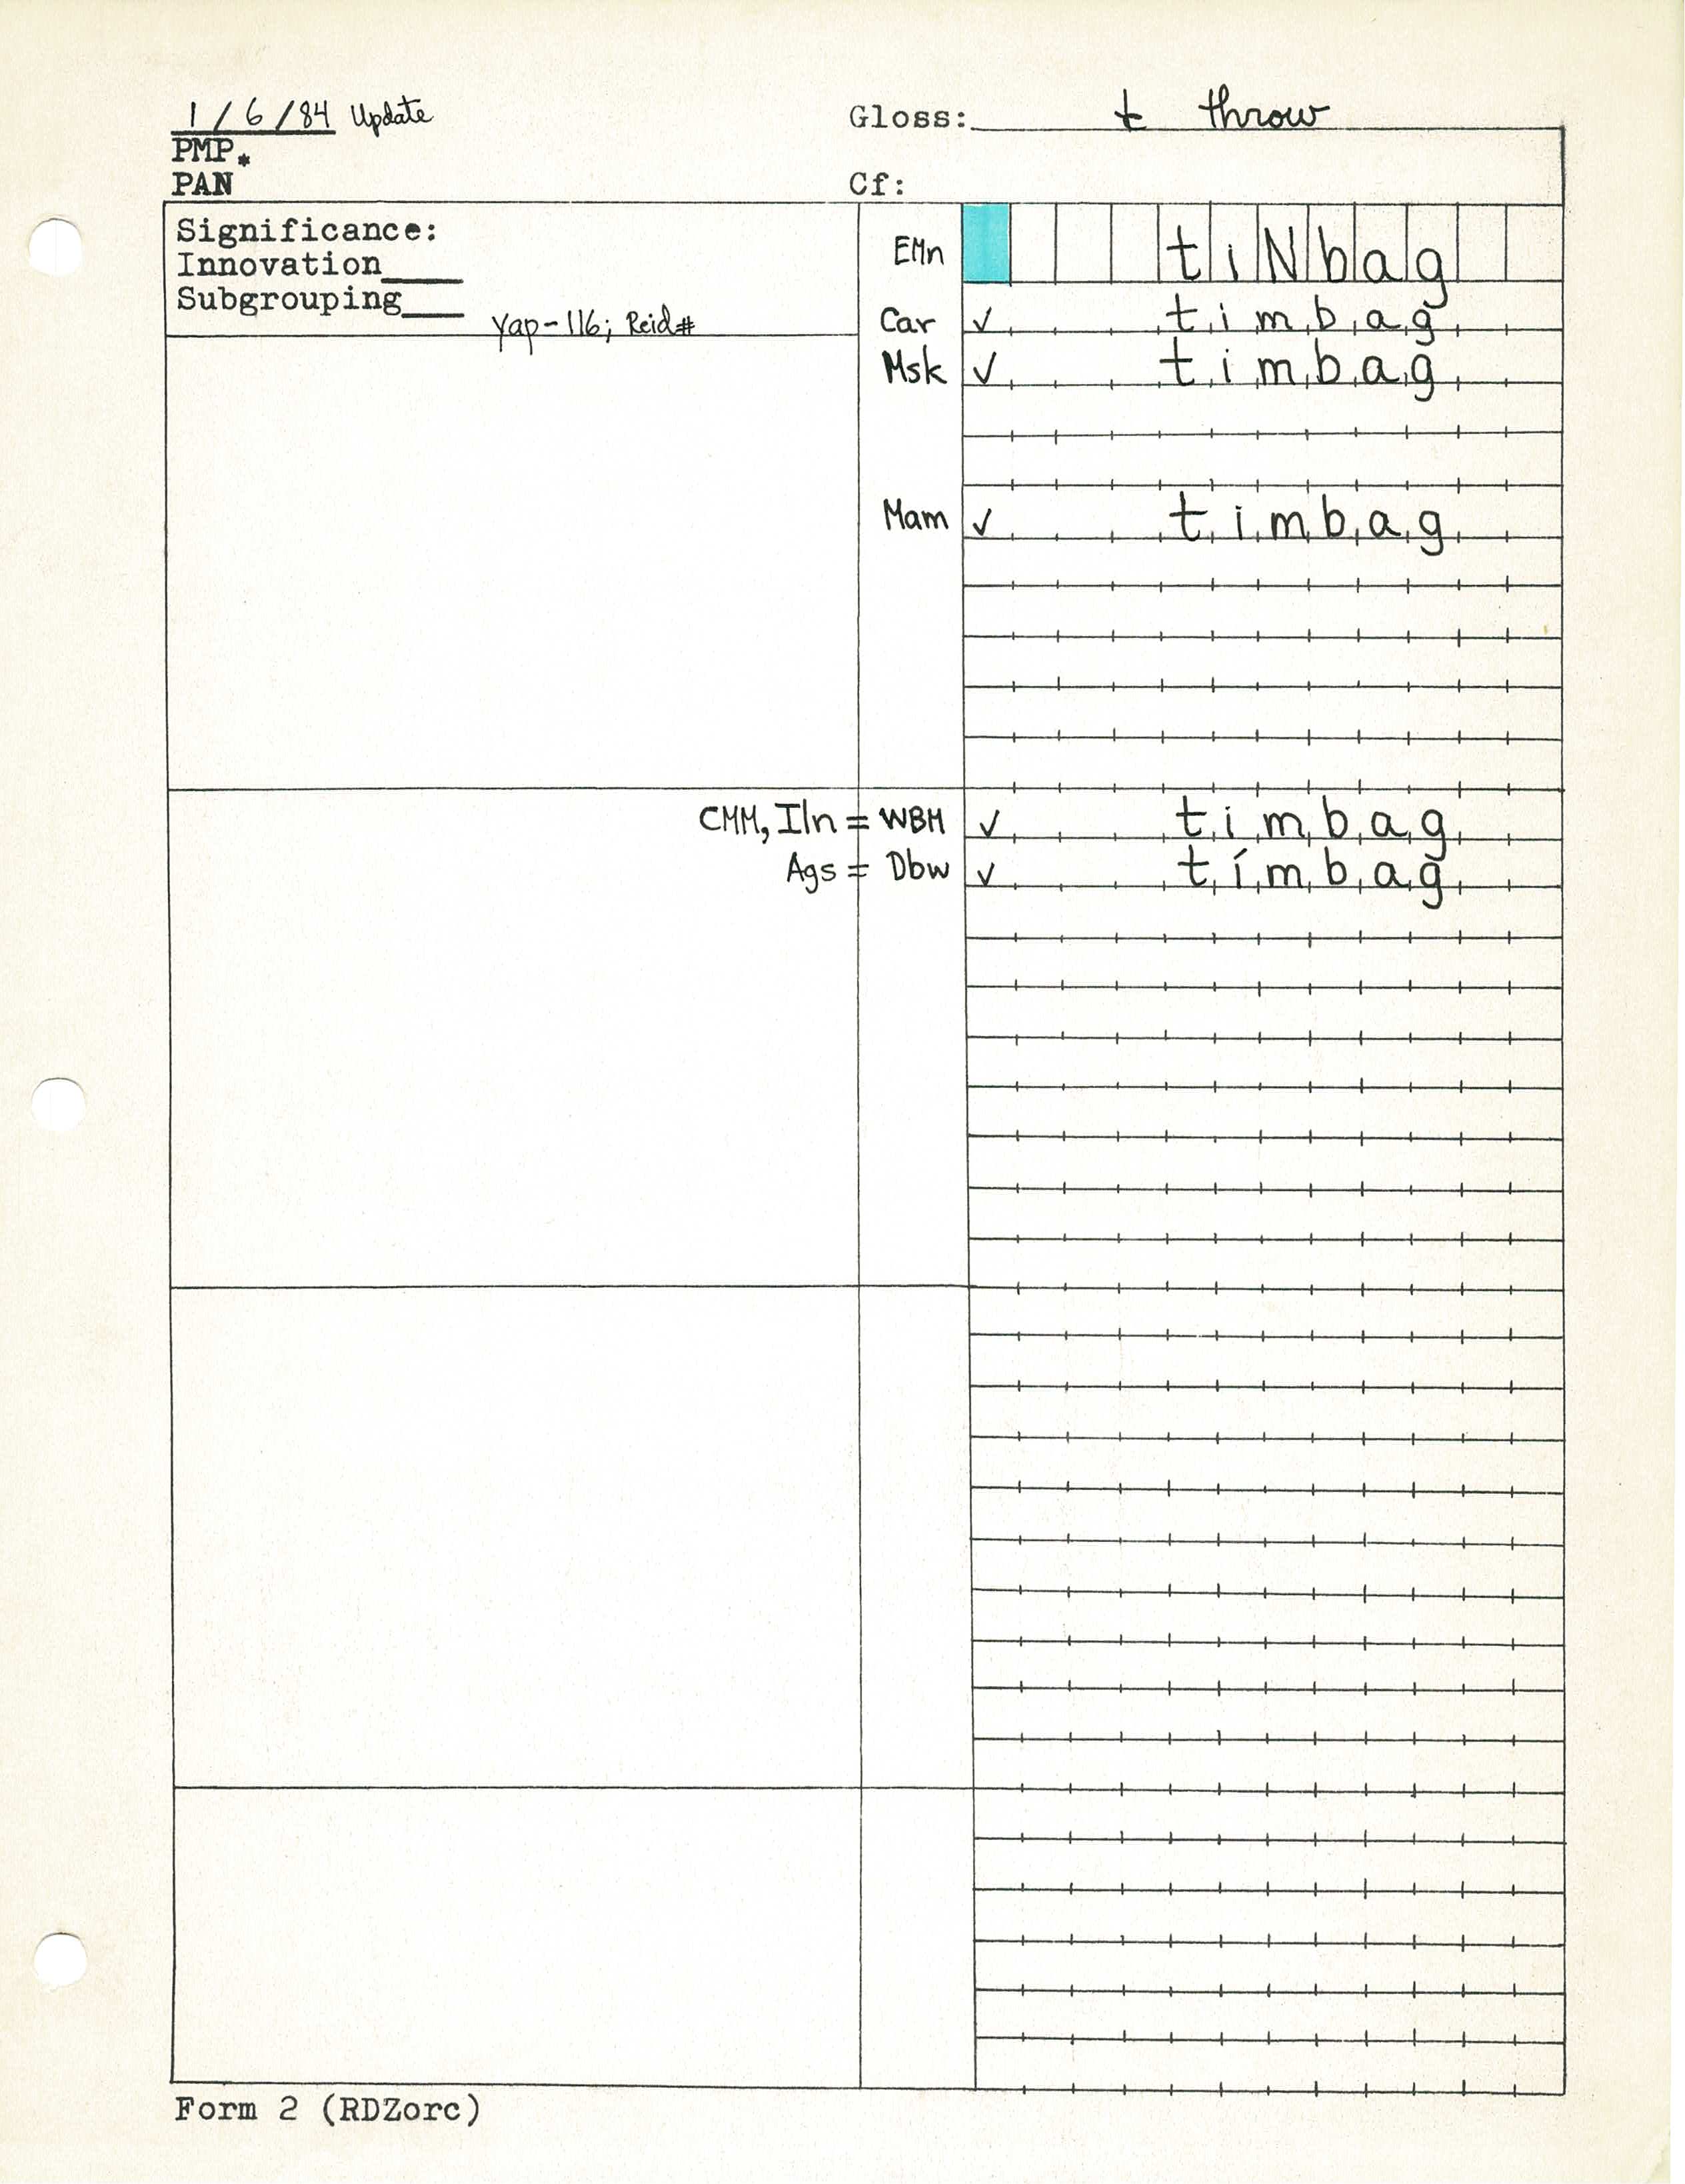 1/6/84 Update
Gloss: t throw
PMP*
PAN
Cf:
Significance:
Innovation
Subgrouping
Yap-116; Reid#
EMn tiNbag
Car ✓ timbag
Msk ✓ timbag
Mam ✓ timbag
CMM, Iln = WBM ✓ timbag
Ags = Dbw ✓ tímbag
Form 2 (RDZorc)